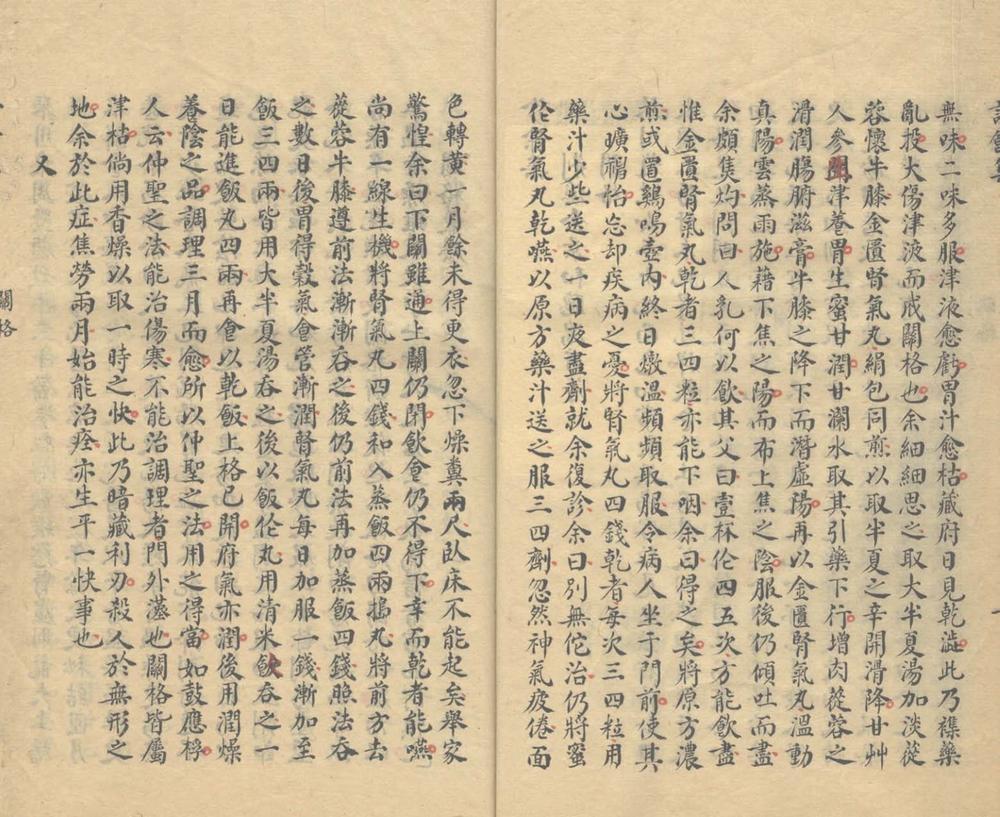 無味二味多服津液愈虧胃汁愈枯藏府日見乾澁此乃襍藥
亂投大傷津液而成關格也余細細思之取大半夏湯加淡蓯
蓉懷牛膝金匱腎氣丸絹包同煎以取半夏之辛開滑降甘艸
人參生津養胃生蜜甘潤甘瀾水取其引藥下行增肉蓯蓉之
滑潤腸腑滋膏牛膝之降下而潛虛陽再以金匱腎氣丸溫動
真陽雲蒸雨施藉下焦之陽而布上焦之陰服後仍傾吐而盡
余頗焦灼問曰人乳何以飲其父曰壹杯作四五次方能飲盡
惟金匱腎氣丸乾者三四粒亦能下咽余曰得之矣將原方濃
煎或置鷄鳴壺內終日燉溫頻頻取服令病人坐于門前使其
心曠禥怡忘却疾病之憂將腎氣丸四錢乾者每次三四粒用
藥汁少些送之一日夜盡劑就余復診余曰別無佗治仍將蜜
作腎氣丸乾嚥以原方藥汁送之服三四劑忽然神氣疲倦面
色轉黃一月餘未得更衣忽下燥糞兩尺臥床不能起矣舉家
驚惶余曰下關雖通上關仍閉飲食仍不得下幸而乾者能嚥
尚有一線生機將腎氣丸四錢和入蒸飯四兩搗丸將前方去
蓯蓉牛膝遵前法漸漸吞之後仍前法再加蒸飯四錢照法吞
之數日後胃得穀氣食管漸潤腎氣丸每日加服一錢漸加至
飯三四兩皆用大半夏湯吞之後以飯作丸用清米飲吞之一
日能進飯丸四兩再食以乾飯上格已開府氣亦潤後用潤燥
養陰之品調理三月而愈所以仲聖之法用之得當如鼓應桴
人云仲聖之法能治傷寒不能治調理者門外漢也關格皆屬
津枯倘用香燥以取一時之快此乃暗藏利刃殺人於無形之
地余於此症焦勞兩月始能治痊亦生平一快事也
又
關格